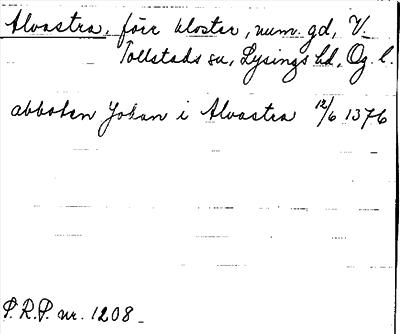 Alvastra, förr kloster, num. gd, V.
Tollstads sn, Lysings hd, Ög. l.
abboten Johan i Alvastra 12/6 1376
P.R.P. nr. 1208.